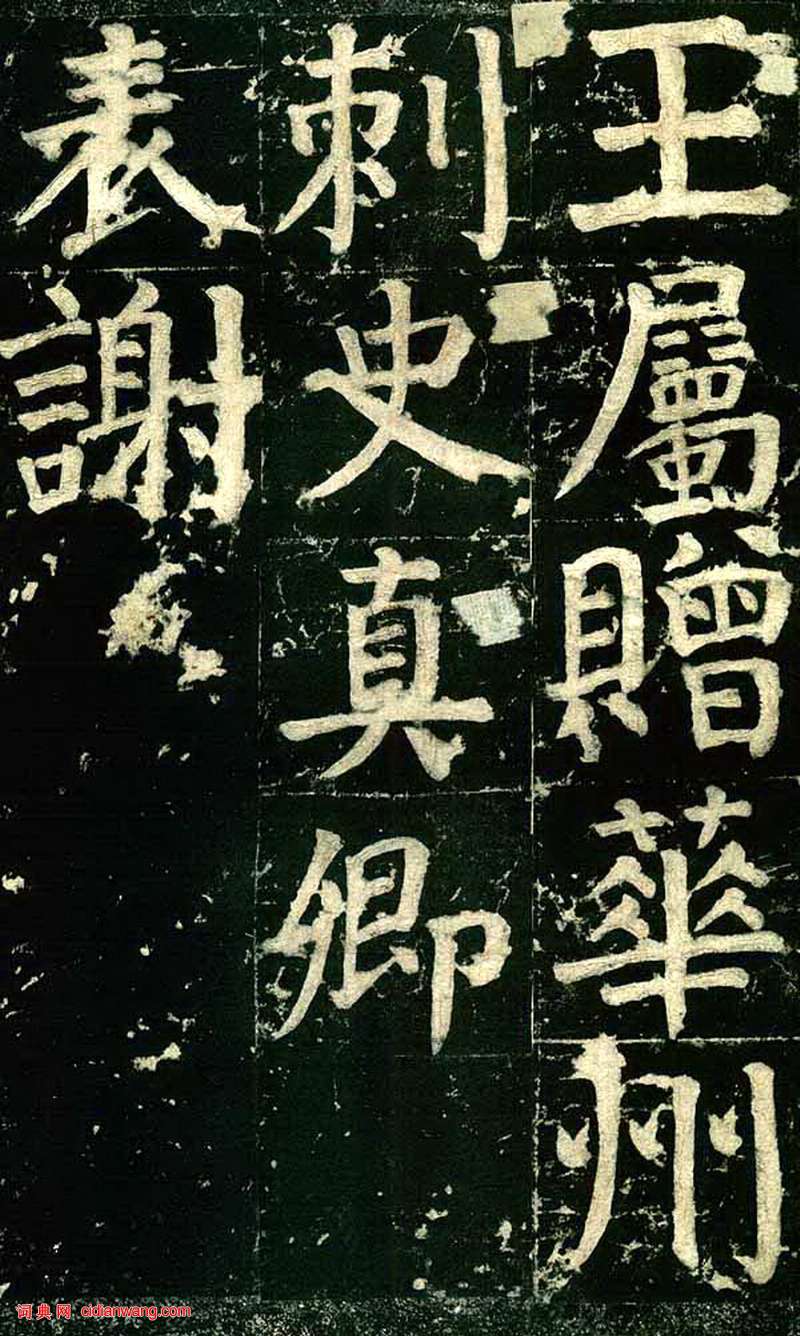 王屬贈華州
刺史真卿
表謝
词典网 cidianwang.com